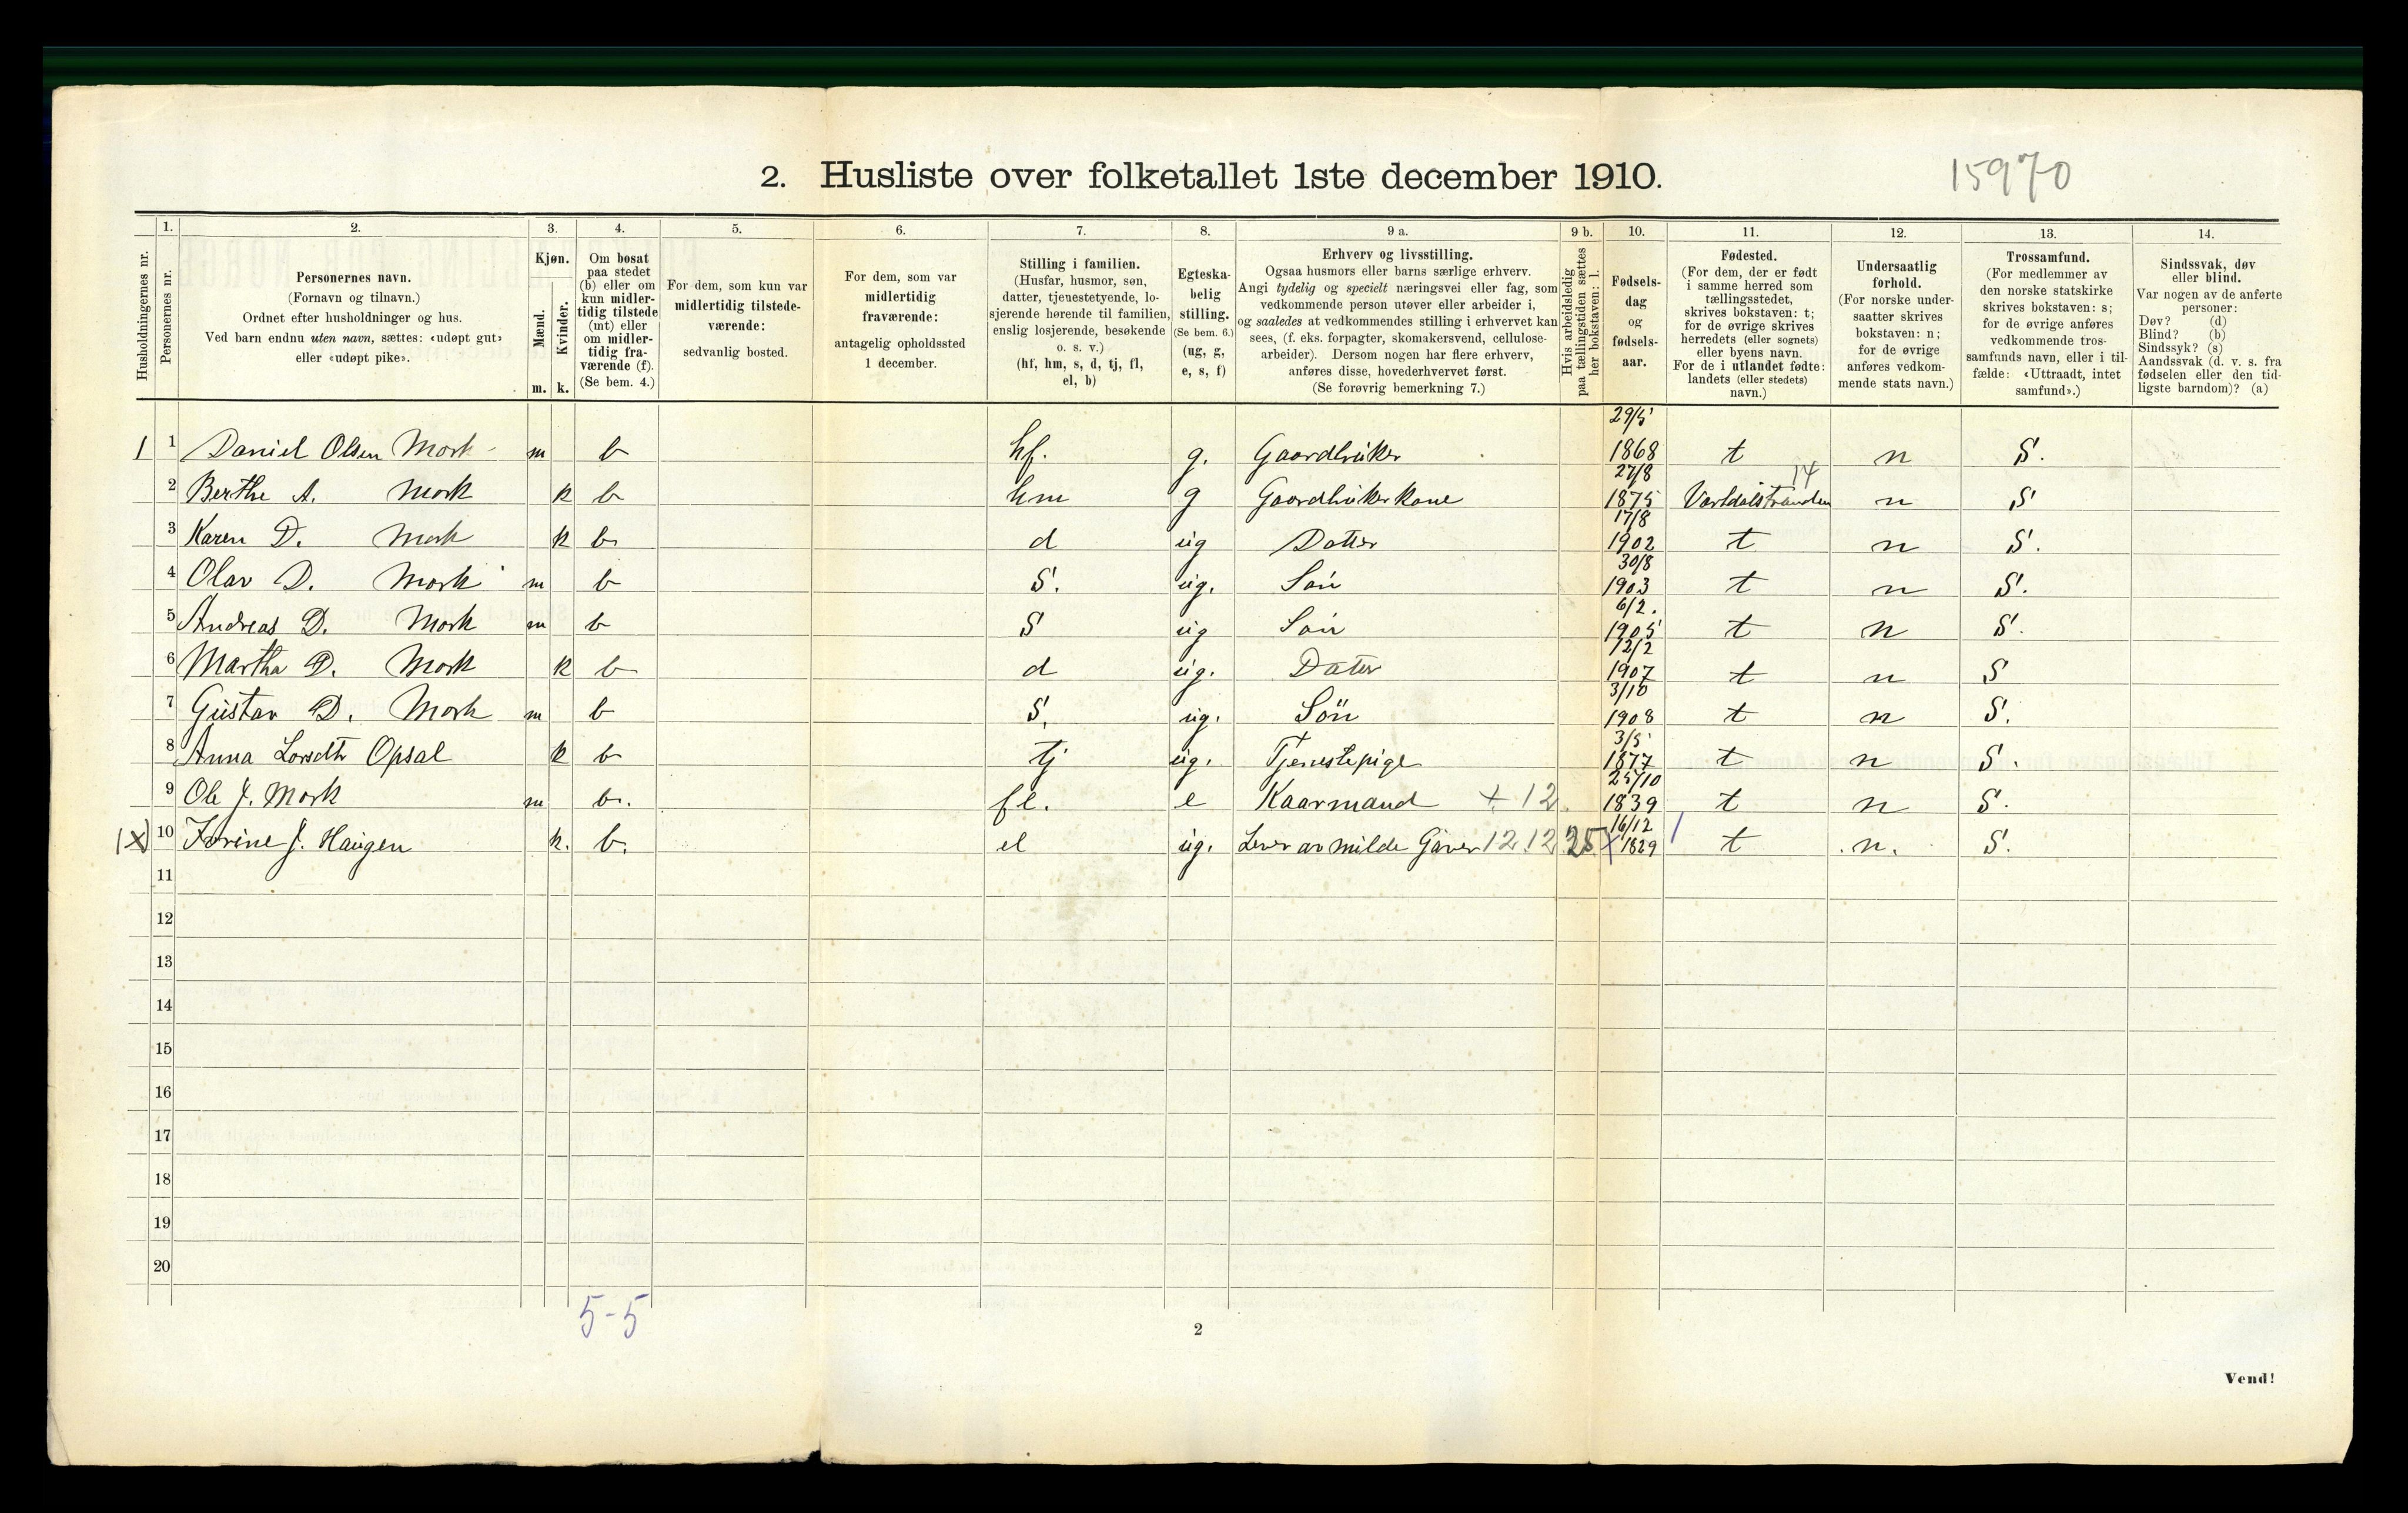 2. Husliste over folketallet 1ste december 1910.
15970
Husholdningernes nr.
1.
Personernes nr.
2.
Personernes navn.
(Fornavn og tilnavn.)
Ordnet efter husholdninger og hus.
Ved barn endnu uten navn, sættes: «udøpt gut»
eller «udøpt pike».
3.
Kjøn.
Mænd.
Kvinder.
m. k.
4.
Om bosat
paa stedet
(b) eller om
kun midler-
tidig tilstede
(mt) eller
om midler-
tidig fra-
værende (f).
(Se bem. 4.)
5.
For dem, som kun var
midlertidig tilstede-
værende:
sedvanlig bosted.
6.
For dem, som var
midlertidig
fraværende:
antagelig opholdssted
1 december.
7.
Stilling i familien.
(Husfar, husmor, søn,
datter, tjenestetyende, lo-
sjerende hørende til familien,
enslig losjerende, besøkende
o. s. v.)
(hf, hm, s, d, tj, fl,
el, b)
8.
Egteska-
belig
stilling.
(Se bem. 6.)
(ug, g,
e, s, f)
9 a.
Erhverv og livsstilling.
Ogsaa husmors eller barns særlige erhverv.
Angi tydelig og specielt næringsvei eller fag, som
vedkommende person utøver eller arbeider i,
og saaledes at vedkommendes stilling i erhvervet kan
sees, (f. eks. forpagter, skomakersvend, cellulose-
arbeider). Dersom nogen har flere erhverv,
anføres disse, hovederhvervet først.
(Se forøvrig bemerkning 7.)
9 b.
Hvis arbeidsledig
paa tællingstiden sættes
her bokstaven: l.
10.
Fødsels-
dag
og
fødsels-
aar.
11.
Fødested.
(For dem, der er født
i samme herred som
tællingsstedet,
skrives bokstaven: t;
for de øvrige skrives
herredets (eller sognets)
eller byens navn.
For de i utlandet fødte:
landets (eller stedets)
navn.)
12.
Undersaatlig
forhold.
(For norske under-
saatter skrives
bokstaven: n;
for de øvrige
anføres vedkom-
mende stats navn.)
13.
Trossamfund.
(For medlemmer av
den norske statskirke
skrives bokstaven: s;
for de øvrige anføres
vedkommende tros-
samfunds navn, eller i til-
fælde: «Uttraadt, intet
samfund».)
14.
Sindssvak, døv
eller blind.
Var nogen av de anførte
personer:
Døv? (d)
Blind? (b)
Sindssyk? (s)
Aandssvak (d. v. s. fra
fødselen eller den tid-
ligste barndom)? (a)
1 1 Daniel Olsen Mork m b hf. g. Gaardbruker 29/5 1868 t n S.
2 Berthe A. Mork k b hm g Gaardbrukerkone 27/8 1875 Vartdalstranden 14 n S
3 Karen D. Mork k b d ug Datter 17/8 1902 t n S.
4 Olav D. Mork m b S. ug. Søn 30/8 1903 t n S.
5 Andreas D. Mork m b S ug Søn 6/2. 1905 t n S.
6 Martha D. Mork k b d ug. Datter 12/2 1907 t n S
7 Gustav D. Mork m b S. ug. Søn 3/10 1908 t n S.
8 Anna Opsal k b tj ug. Tjenestepige 3/5 1877 t n S.
9 Ole J. Mork m b. fl. e Kaarmand + 12 25/10 1839 t n S.
1x) 10 J. Haugen k. b. el ug. Lever av milde Gaver 12.12 35 x 16/12 1829 / t n. S.
11
12
13
14
15
16
17
18
19
20
5-5
2
Vend!